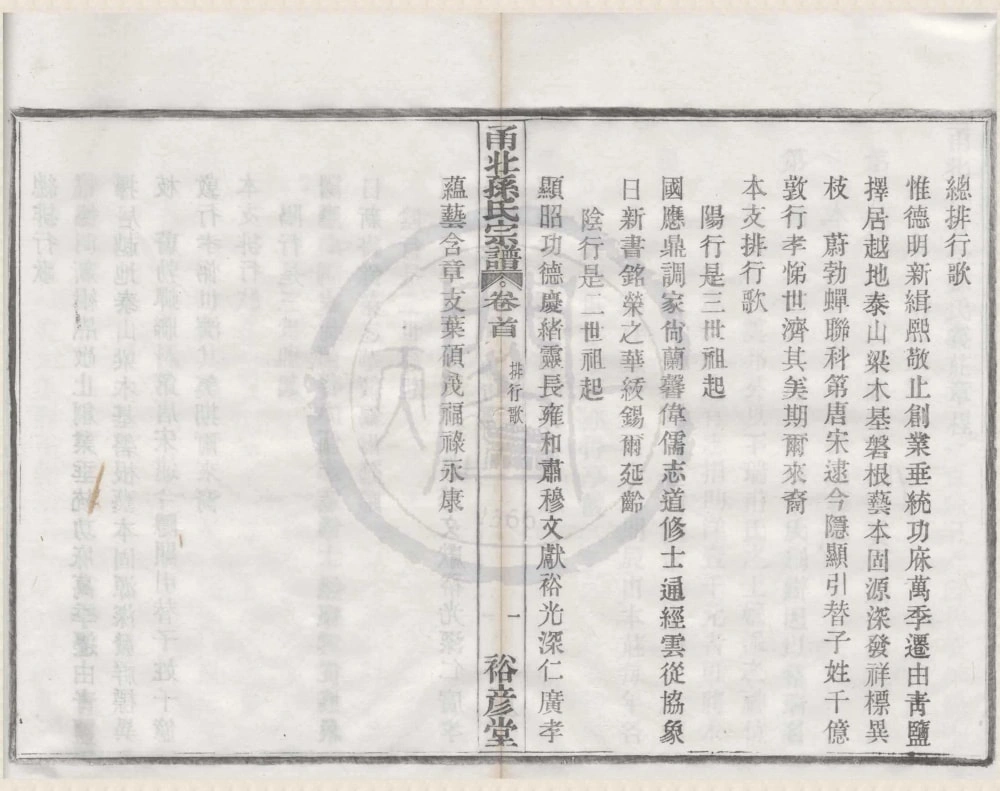 總排行歌
惟德明新緝熙敬止創業垂統功庥萬季遷由靑鹽
擇居越地泰山梁木基磐根蓺本固源深發祥標異
枝　蔚勃蟬聯科第唐宋逮今隱顯引替子姓千億
敦行孝悌世濟其美期爾來裔
本支排行歌
陽行是三世祖起
國應鼎調家尙蘭馨偉儒志道修士通經雲從協象
日新書銘榮之華綏錫爾延齡
陰行是二世祖起
顯昭功德慶緒靈長雍和肅穆文獻裕光深仁廣孝
甬北孫氏宗譜　卷首　排行歌　一　裕彥堂
蘊藝含章支葉碩茂福祿永康